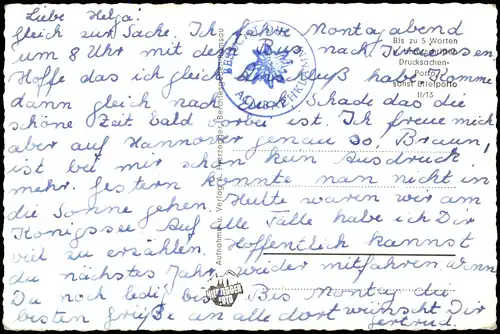 Liebe Helga!
Gleich zur Sache. Ich fahre Montagabend
um 8 Uhr mit dem Bus nach Kreiensen
Hoffe das ich gleich Anschluß habe. Komme
dann gleich nach Schade das die
schöne Zeit bald vorbei ist. Ich freue mich
aber auf Hannover genau so, Braun,
ist bei mir schon kein Ausdruck
mehr. Gestern konnte man nicht in
die Sonne gehen. Heute waren wir am
Königssee Auf alle Fälle habe ich Dir
viel zu erzählen. Hoffentlich kannst
du nächstes Jahr wieder mitfahren wenn
Du noch ledig bist. Bis Montag die
besten Grüße an alle dort wünscht Dir
Gertrud
Bis zu 5 Worten
Drucksachen-
Porto
sonst Briefporto
11/13
Aufnahme u. Verlag